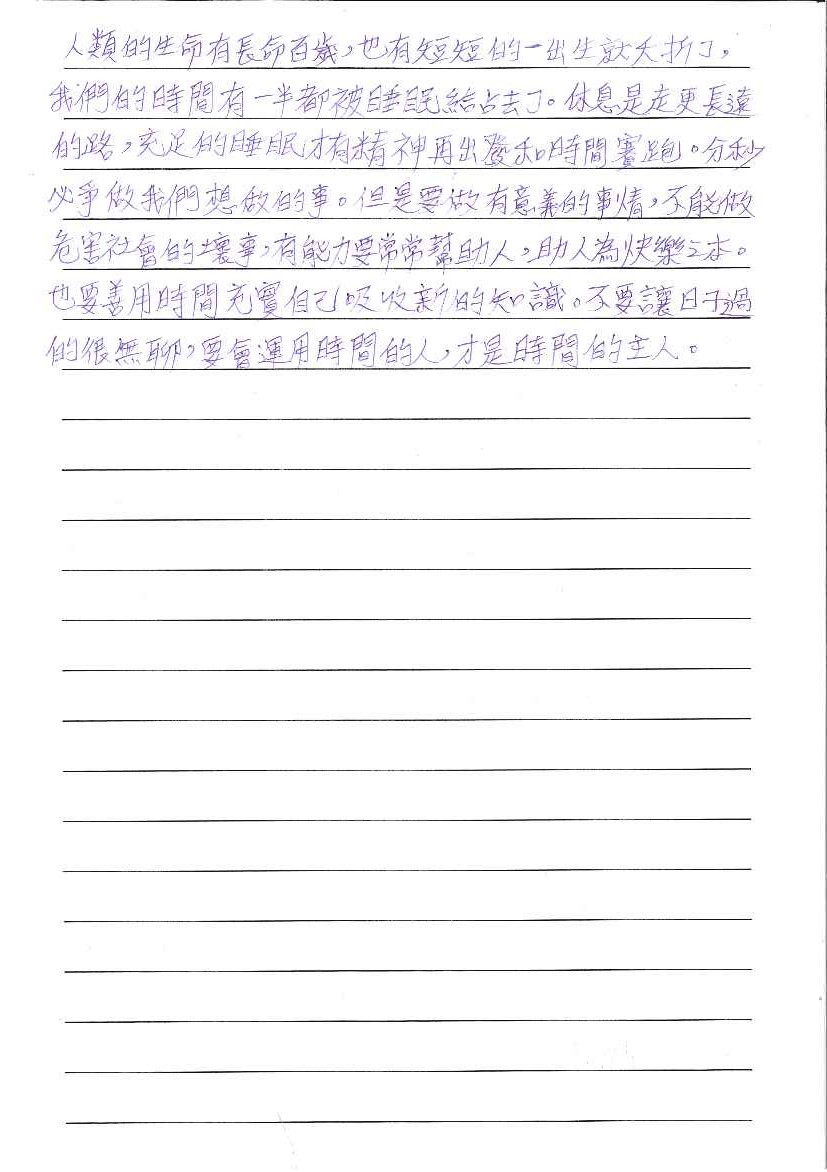 人類的生命有長命百歲，也有短短的一出生就夭折了，
我們的時間有一半都被睡眠給占去了。休息是走更長遠
的路，充足的睡眠才有精神再出發和時間賽跑。分秒
必爭做我們想做的事。但是要做有意義的事情，不能做
危害社會的壞事，有能力要常常幫助人，助人為快樂之本。
也要善用時間充實自己吸收新的知識。不要讓日子過
的很無聊，要會運用時間的人，才是時間的主人。